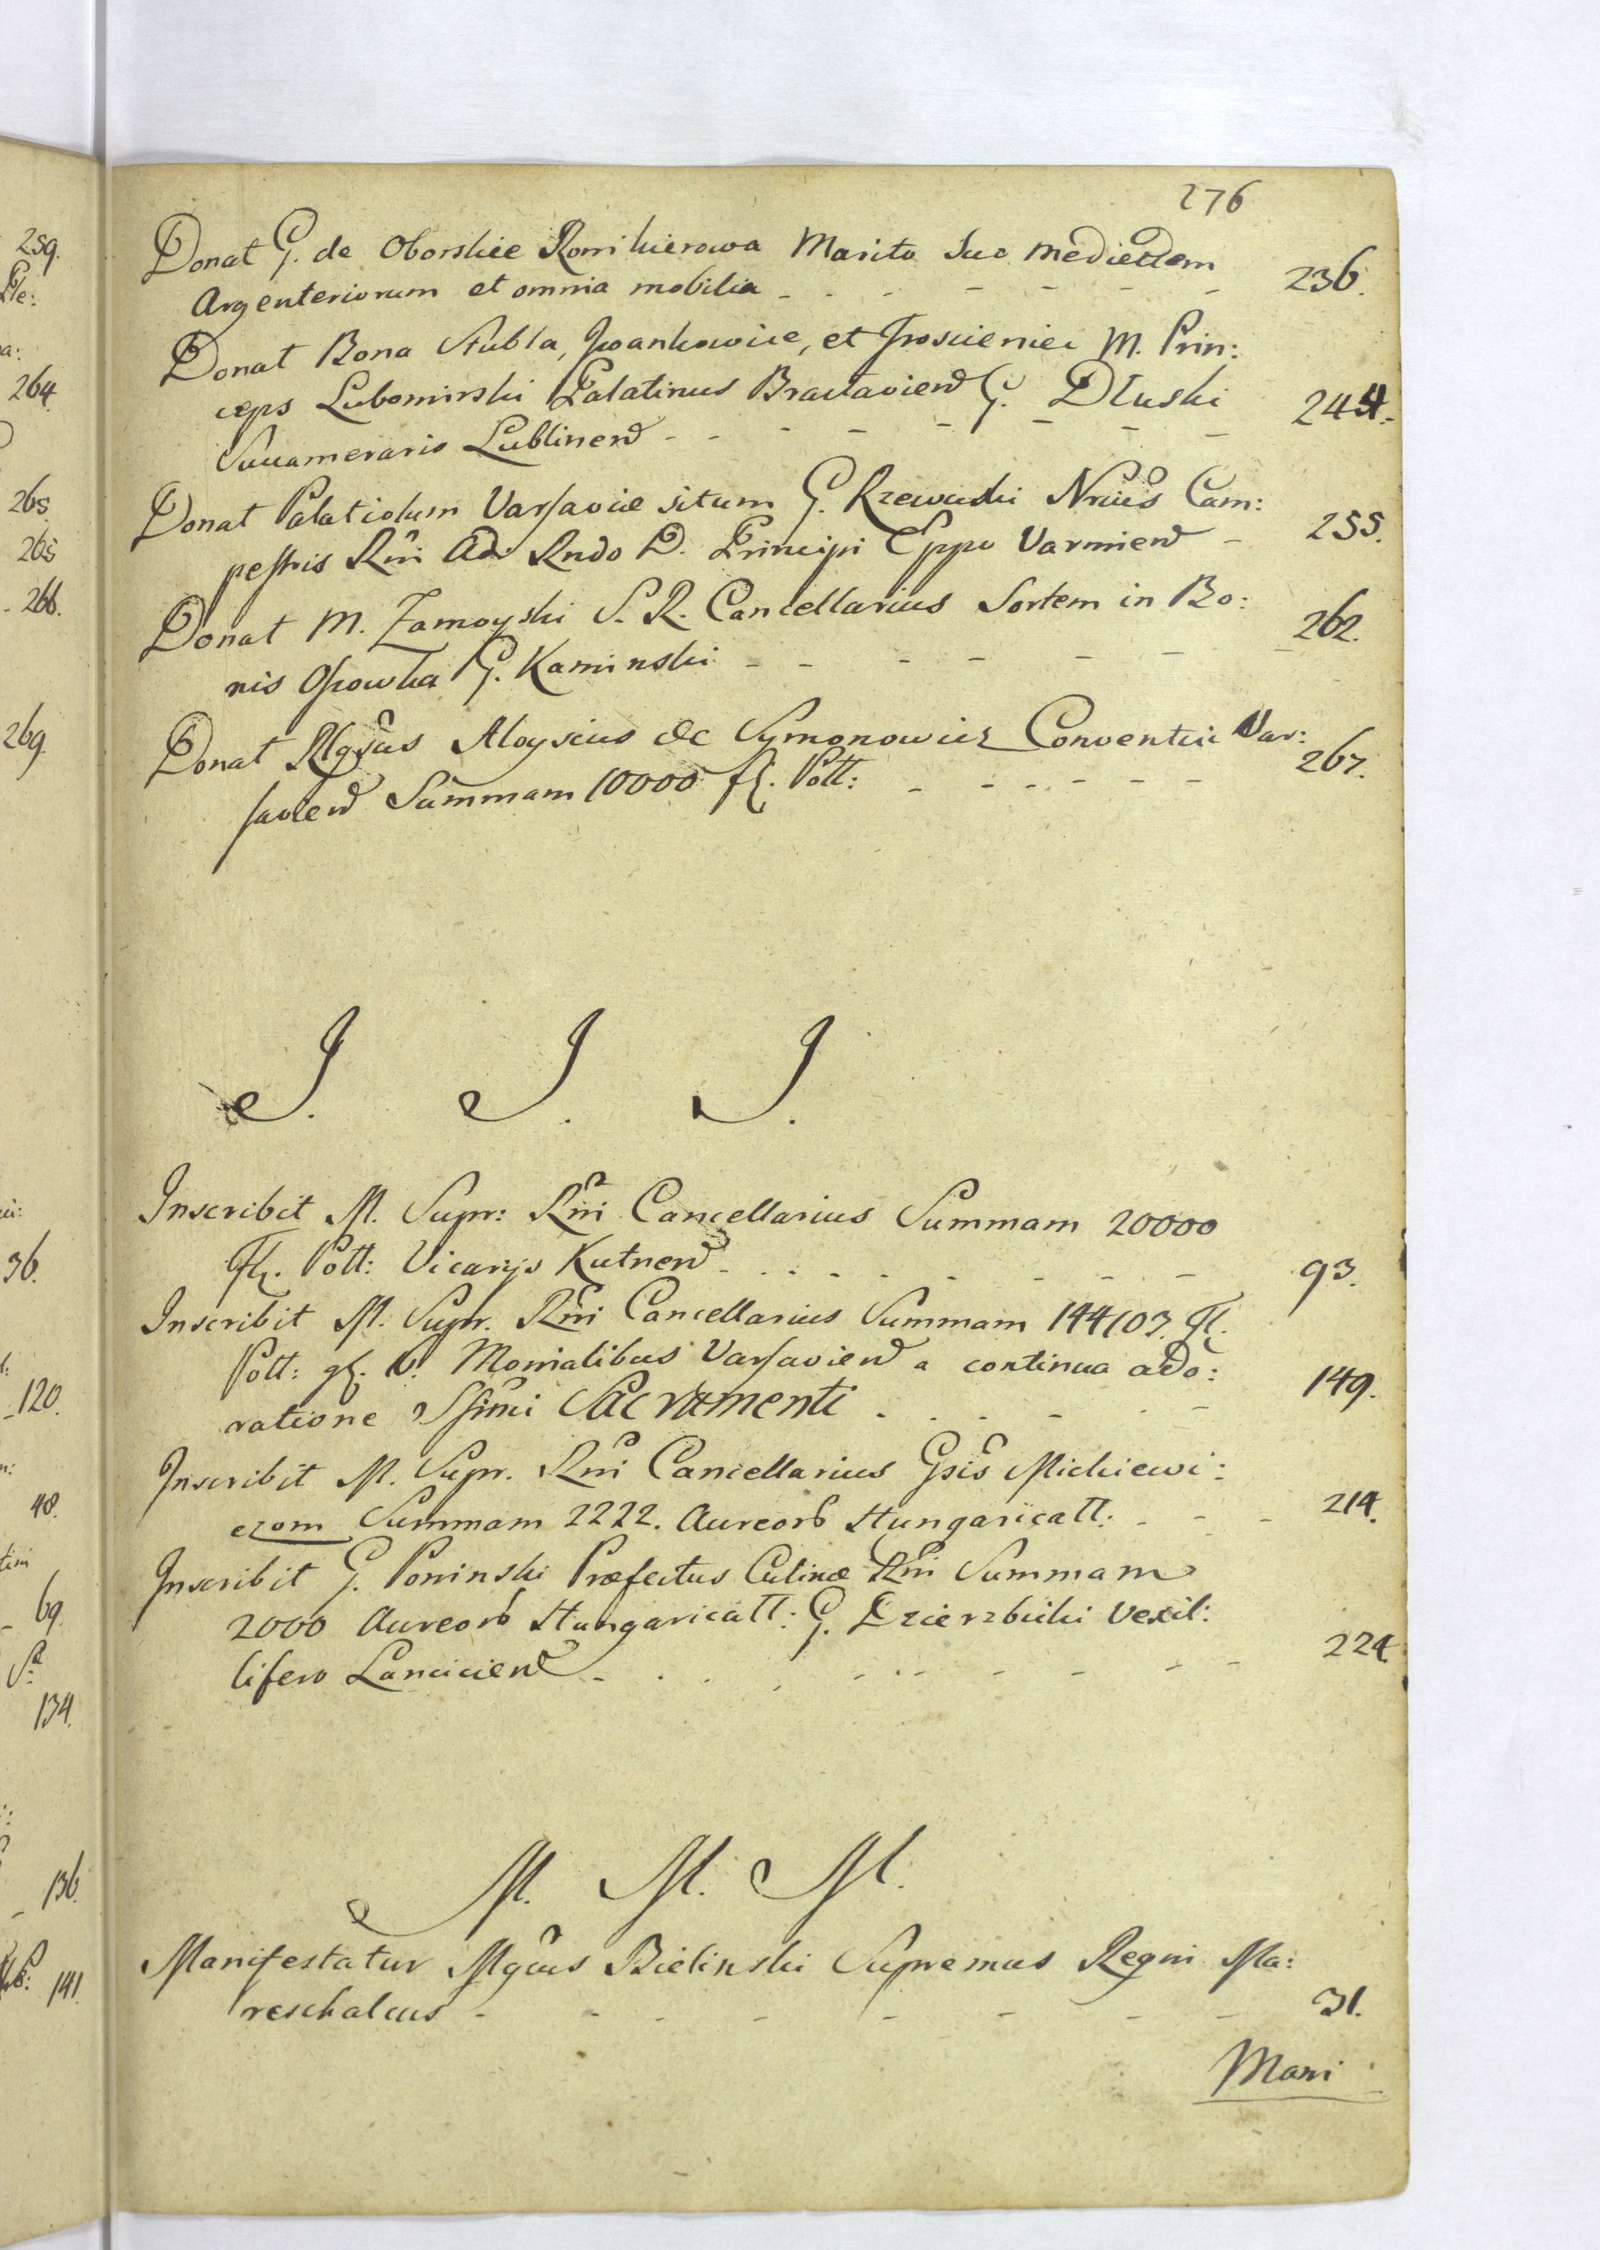 259.
Ple:
a:
264.
265
265
266.
269.
36.
120.
40.
69.
134.
136.
141.
276
Donat G. de Oborskie Ronikierowa Marito Suo medietem
Argenteriorum et omnia mobilia 236.
Donat Bona Stubla, Iwankowice, et Troscieniec M. Prin:
ceps Lubomirski Palatinus Braclavien G. Dluski
Succamerario Lublinen 244.
Donat Palatiolum Varsaviæ situm G. Rzewuski Nrius Cam:
pestris Rni Adi Rndo D. Principi Eppo Varmien 255.
Donat M. Zamoyski S. R. Cancellarius Sortem in Bo:
nis Opowka G. Kaminski 262.
Donat Mgfcus Aloysius de Symonowicz Conventui Var:
savien Summam 10000 fl. Poll: 267.
I. I. I.
Inscribit M. Supr: Rni Cancellarius Summam 20000
Fl. Poll: Vicarijs Kutnen 93.
Inscribit M. Supr. Rni Cancellarius Summam 144103. Fl.
Poll: gl. V. Monialibus Varsavien a continua ado:
ratione Ssimi Sacramenti 149.
Inscribit M. Supr. Rni Cancellarius Gsis Mickiewi:
czom Summam 2222. Aureorb Hungaricall: 214.
Inscribit G. Poninski Præfectus Culinæ Rni Summam
2000 Aureorb Hungaricall: G. Dzierzbicki Vexil:
lifero Lancicien 224.
M. M. M.
Manifestatur Mgcus Bielinski Supremus Regni Ma:
reschalcus 31.
Mani